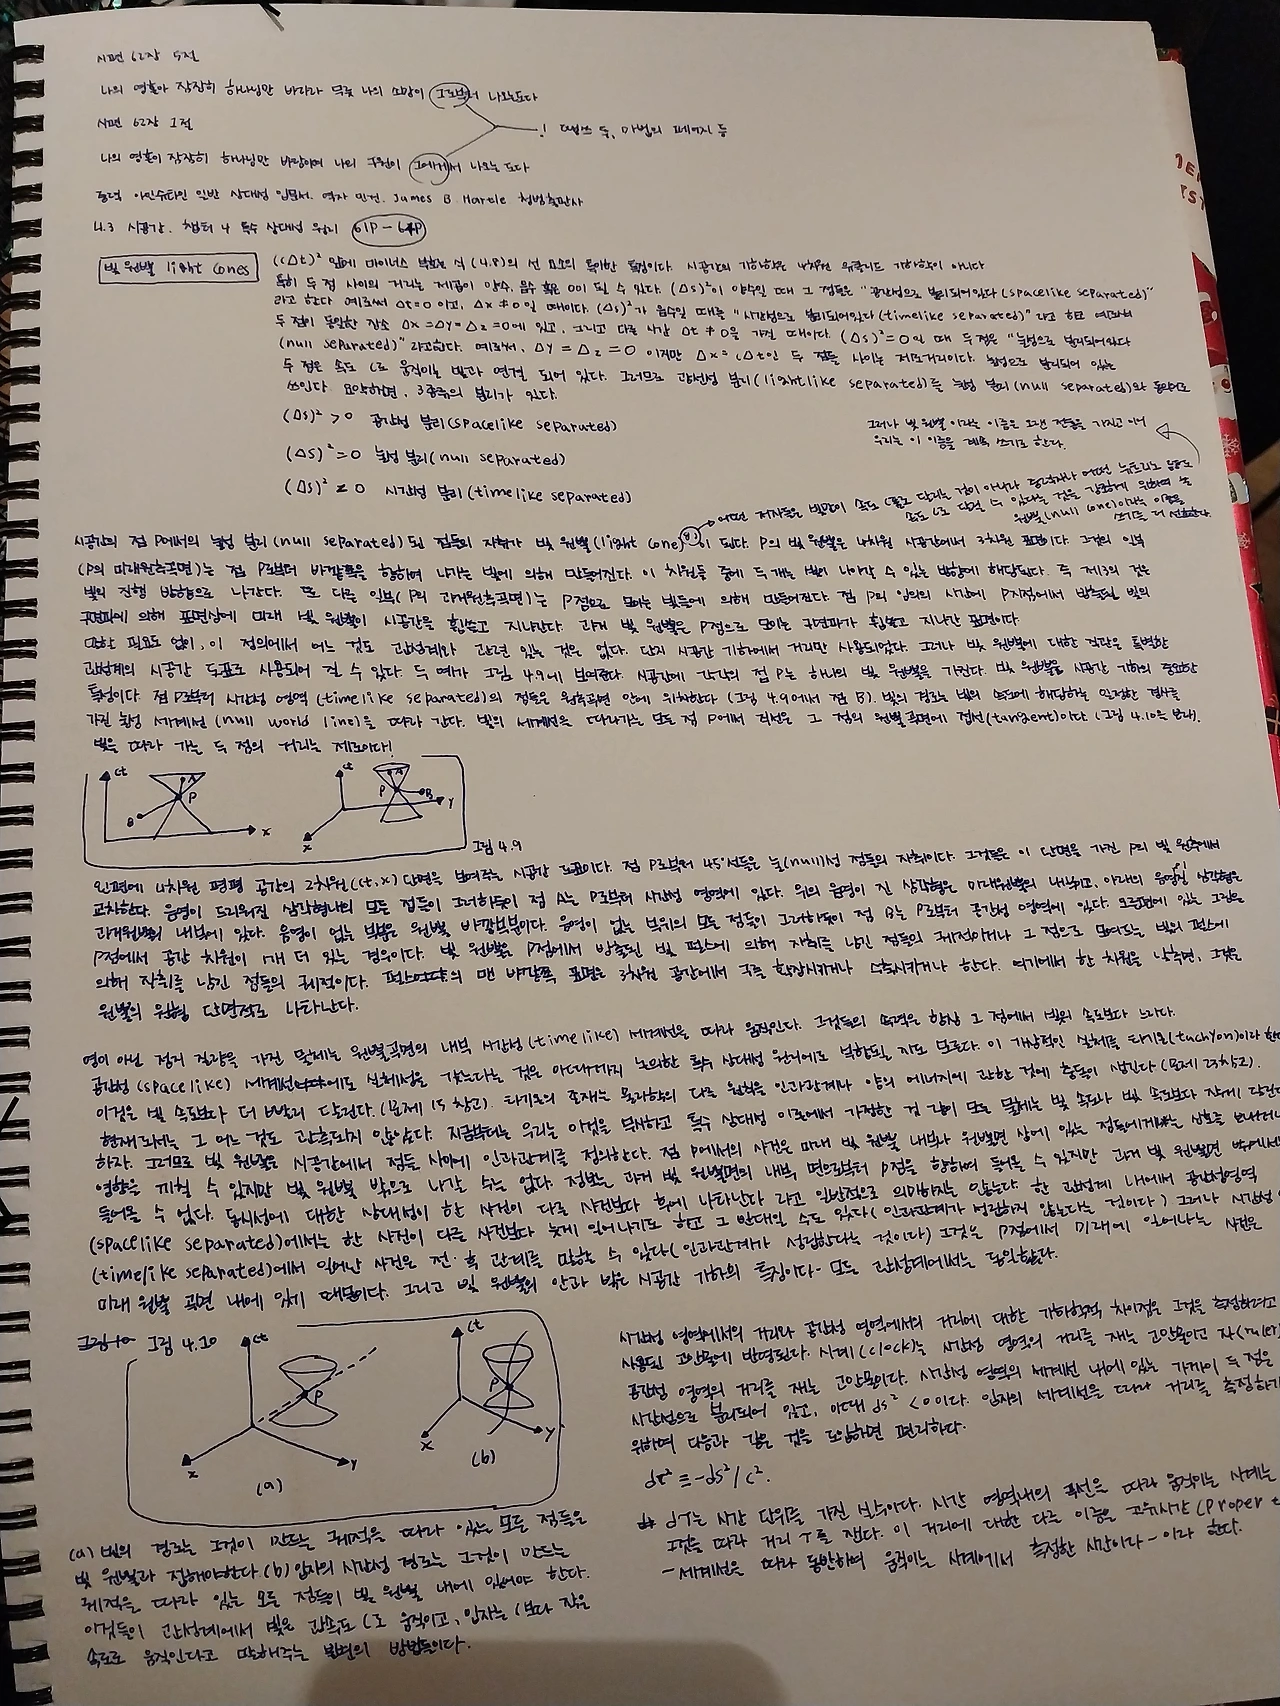 시편 62장 5절
나의 영혼아 잠잠히 하나님만 바라라 무릇 나의 소망이 그로부터 나오는도다
시편 62장 1절
! 템쓰 등, 마법의 페이지 등
나의 영혼이 잠잠히 하나님만 바람이여 나의 구원이 그에게서 나오는 도다
중력 아인슈타인 일반 상대성 입문서. 역자 민건. James B Hartle 청범출판사
4.3 시공간. 챕터 4 특수 상대성 원리 61P-64P
빛 원뿔 light cones
(cΔt)² 앞에 마이너스 부호는 식 (4.8)의 선 요소의 특이한 특징이다. 시공간의 기하학은 4차원 유클리드 기하학이 아니다
특히 두 점 사이의 거리는 제곱이 양수, 음수 혹은 0이 될 수 있다. (Δs)²이 양수일 때 그 점들은 "공간성으로 분리되어있다(spacelike separated)"
라고 한다 예로써 Δt=0 이고, Δx ≠ 0일 때이다. (Δs)²가 음수일 때는 "시간성으로 분리되어있다(timelike separated)" 라고 하고 예로써
두 점이 동일한 장소 Δx=Δy=Δz=0에 있고, 그리고 다른 시간 Δt ≠ 0을 가질 때이다. (Δs)²=0일 때 두점은 "눌성으로 분리되어있다
(null separated)" 라고한다. 예로써, Δy = Δz = 0 이지만 Δx = cΔt인 두 점들 사이는 제로거리이다. 눌성으로 분리되어 있는
두 점은 속도 c로 움직이는 빛과 연결 되어 있다. 그러므로 광선성 분리(lightlike separated)를 눌성 분리(null separated)와 동의어로
쓰인다. 요약하면, 3종류의 분리가 있다.
(Δs)² > 0 공간성 분리(spacelike separated)
(Δs)² = 0 눌성 분리(null separated)
(Δs)² < 0 시간성 분리(timelike separated)
그러나 빛 원뿔 이라는 이름은 오랜 전통을 가지고 있어
우리는 이 이름을 계속 쓰기로 한다.
어떤 저자들은 빛만이 속도 c로 달리는 것이 아니라 중력파나 어떤 뉴트리노 등도
속도 c로 달릴 수 있다는 것을 강조하기 위하여 눌
원뿔(null cone)이라는 이름을
쓰기를 더 선호한다.
시공간의 점 P에서의 눌성 분리(null separated)된 점들의 자취가 빛 원뿔(light cone)이 된다. P의 빛 원뿔은 4차원 시공간에서 3차원 표면이다. 그것의 일부
(P의 미래원추곡면)는 점 P로부터 바깥쪽을 향하여 나가는 빛에 의해 만들어진다. 이 차원들 중에 두 개는 빛이 나아갈 수 있는 방향에 해당된다. 즉 제3의 것은
빛의 진행 방향으로 나간다. 또 다른 일부(P의 과거원추곡면)는 P점으로 모이는 빛들에 의해 만들어진다. 점 P의 임의의 시간에 P지점에서 방출된 빛의
구면파에 의해 표면상에 미래 빛 원뿔이 시공간을 휩쓸고 지나간다. 과거 빛 원뿔은 P점으로 모이는 구면파가 휩쓸고 지나간 표면이다.
말할 필요도 없이, 이 정의에서 어느 것도 관성계와 관련 있는 것은 없다. 단지 시공간 기하에서 거리만 사용되었다. 그러나 빛 원뿔에 대한 직관은 특별한
관성계의 시공간 도표로 사용되어 질 수 있다. 두 예가 그림 4.9에 보여진다. 시공간에 각각의 점 P는 하나의 빛 원뿔을 가진다. 빛 원뿔은 시공간 기하의 중요한
특성이다. 점 P로부터 시간성 영역 (timelike separated)의 점들은 원추곡면 안에 위치한다 (그림 4.9에서 점 B). 빛의 경로는 빛의 속도에 해당하는 일정한 경사를
가진 눌성 세계선 (null world line)을 따라 간다. 빛의 세계선을 따라가는 모든 점 P에서 직선은 그 점의 원뿔곡면에 접선(tangent)이다 (그림 4.10을 보라).
빛을 따라 가는 두 점의 거리는 제로이다!
ct A P B x
ct A P B y x
그림 4.9
왼편에 4차원 평평 공간의 2차원(ct,x) 단면을 보여주는 시공간 도표이다. 점 P로부터 45°선들은 눌(null)성 점들의 자취이다. 그것들은 이 단면을 가진 P의 빛 원추에서
교차한다. 음영이 드리워진 삼각형내의 모든 점들이 그러하듯이 점 A는 P로부터 시간성 영역에 있다. 위의 음영이 진 삼각형은 미래원뿔의 내부이고, 아래의 음영진 삼각형은
과거원뿔의 내부에 있다. 음영이 없는 부분은 원뿔 바깥부분이다. 음영이 없는 부위의 모든 점들이 그러하듯이 점 B는 P로부터 공간성 영역에 있다. 오른편에 있는 그림은
P점에서 공간 차원이 1개 더 있는 경우이다. 빛 원뿔은 P점에서 방출된 빛 펄스에 의해 자취를 남긴 점들의 궤적이거나 그 점으로 모여드는 빛의 펄스에
의해 자취를 남긴 점들의 궤적이다. 펄스의 맨 바깥쪽 표면은 3차원 공간에서 구를 확장시키거나 수축시키거나 한다. 여기에서 한 차원을 낮추면, 그것은
원뿔의 원형 단면적으로 나타난다.
영이 아닌 정지 질량을 가진 물체는 원뿔곡면의 내부 시간성(timelike) 세계선을 따라 움직인다. 그것들의 속력은 항상 그 점에서 빛의 속도보다 느리다.
공간성 (spacelike) 세계선에도 실체성을 갖는다는 것은 아래에까지 논의한 특수 상대성 원리에도 부합될 지도 모른다. 이 가상적인 실체를 타키온(tachyon)이라 한다
이것은 빛 속도보다 더 빨리 달린다.(문제 15 참고). 타키온의 존재는 물리학의 다른 원칙은 인과관계나 양의 에너지에 관한 것에 충돌이 생긴다 (문제 23참고).
현재로써는 그 어느 것도 관측되지 않았다. 지금부터는 우리는 이것을 무시하고 특수 상대성 이론에서 가정한 것 같이 모든 물체는 빛 속도와 빛 속도보다 작게 달린다
하자. 그러므로 빛 원뿔은 시공간에서 점들 사이에 인과관계를 정의한다. 점 P에서의 사건은 미래 빛 원뿔 내부나 원뿔면 상에 있는 점들에게 신호를 보내거나
영향을 끼칠 수 있지만 빛 원뿔 밖으로 나갈 수는 없다. 정보는 과거 빛 원뿔면의 내부 면으로부터 P점을 향하여 들어올 수 있지만 과거 빛 원뿔면 밖에서는
들어올 수 없다. 동시성에 대한 상대성이 한 사건이 다른 사건보다 후에 나타난다 라고 일반적으로 의미하지는 않는다. 한 관성계 내에서 공간성영역
(spacelike separated)에서는 한 사건이 다른 사건보다 늦게 일어나기도 하고 그 반대일 수도 있다(인과관계가 성립하지 않는다는 것이다) 그러나 시간성
(timelike separated)에서 일어난 사건은 전·후 관계를 말할 수 있다(인과관계가 성립한다는 것이다) 그것은 P점에서 미래에 일어나는 사건은
미래 원뿔 곡면 내에 있기 때문이다. 그리고 빛 원뿔의 안과 밖은 시공간 기하의 특징이다- 모든 관성계에서는 동일하다.
그림 4.10
ct P x y (a)
ct P x y (b)
(a) 빛의 경로는 그것이 만드는 궤적을 따라 있는 모든 점들은
빛 원뿔과 접해야한다 (b) 입자의 시간성 경로는 그것이 만드는
궤적을 따라 있는 모든 점들이 빛 원뿔 내에 있어야 한다.
이것들이 관성계에서 빛은 광속도 c로 움직이고, 입자는 c보다 작은
속도로 움직인다고 말해주는 불변의 방법들이다.
시간성 영역에서의 거리와 공간성 영역에서의 거리에 대한 기하학적 차이점은 그것을 측정하려고
사용된 고안물에 반영된다. 시계(clock)는 시간성 영역의 거리를 재는 고안물이고 자(ruler)
공간성 영역의 거리를 재는 고안물이다. 시간성 영역의 세계선 내에 있는 가까이 두 점은
시간성으로 분리되어 있고, 이때 ds² < 0이다. 입자의 세계선을 따라 거리를 측정하기
위하여 다음과 같은 것을 도입하면 편리하다.
dτ² ≡ -ds²/c².
dτ는 시간 단위를 가진 실수이다. 시간 영역내의 곡선을 따라 움직이는 시계는
그것을 따라 거리 τ를 잰다. 이 거리에 대한 다른 이름은 고유시간 (proper t
-세계선을 따라 동반하여 움직이는 시계에서 측정한 시간이라-이라 한다.